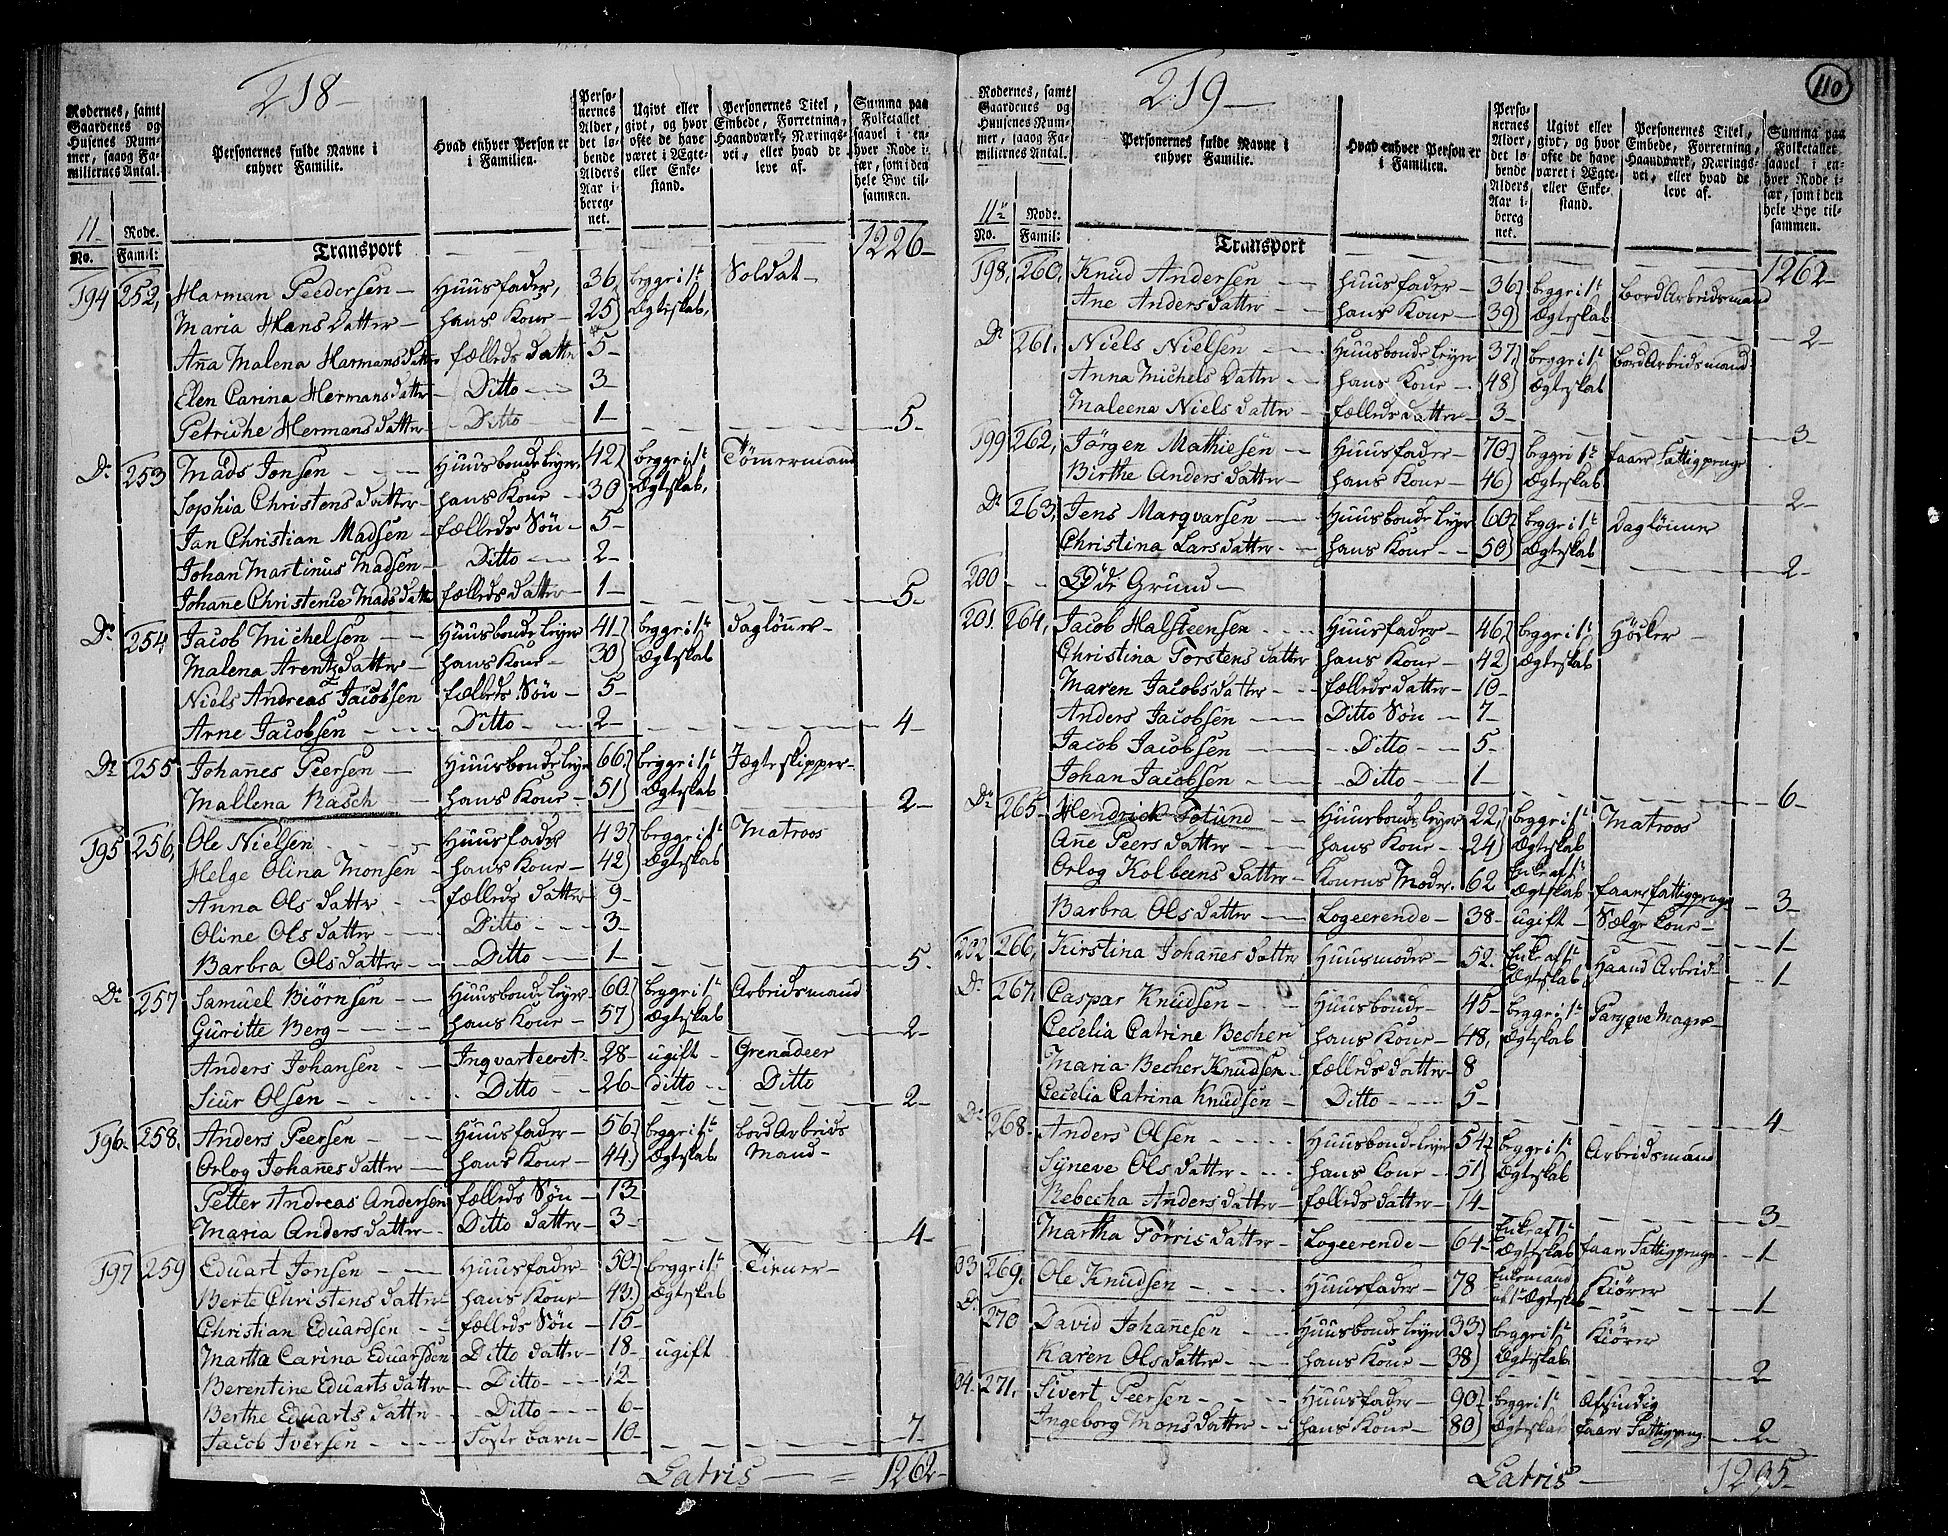 218
Rodernes, samt Gaardenes og Husenes Nummer, saaog Familiernes Antal.
Personernes fulde Navne i enhver Familie.
Hvad enhver Person er i Familien.
Personernes Alder, det løbende Alders Aar iberegnet.
Ugivt eller givt, og hvor ofte de have været i Ægte- eller Enkestand.
Personernes Titel, Embede, Forretning, Haandværk, Næringsvei, eller hvad de leve af.
Summa paa Folketallet saavel i enhver Rode især, som i den hele Bye tilsammen.
11 Rode.
No. Famil:
Transport 1226
194 252, Harman Peedersen Huusfader, 36, begge i 1t Soldat
Maria Hansdatter hans Kone 25 Ægteskab,
Aña Malena Harmansdatter fælleds datter 5
Elen Carina Hermansdatter Ditto 3
Petriche Hermansdatter Ditto 1 5
Do 253 Mads Jonsen Huusbonde leyer 42 begge i 1t Tømermand
Sophia Christensdatter hans Kone 30 Ægteskab,
Jan Christian Madsen fælleds Søn 5
Johan Martinus Madsen Ditto 2
Johañe Christence Madsdatter fælleds datter 1 5
Do 254 Jacob Michelsen Huusbonde leyer 41 begge i 1t daglöner
Malena Arentzdatter hans Kone 30 Ægteskab
Niels Andreas Jacobsen fælleds Søn 5
Arne Jacobsen Ditto 2 4
Do 255 Johañes Peersen Huusbonde leyer 66 begge i 1t Jægteskipper
Mallena Rasch hans Kone 51 Ægteskab 2
195 256, Ole Nielsen Huusfader 43 begge i 1t Matroos
Helge Olina Monsen hans Kone 42 Ægteskab
Anna Olsdatter fælleds datter 9
Oline Olsdatter Ditto 3
Barbra Olsdatter Ditto 1 5.
Do 257 Samuel Biörnsen Huusbonde leyer 60 begge i 1t Arbeidsmand
Guritte Berg hans Kone 57 Ægteskab 2
Anders Johansen Inqvarteeret 28 ugift Grenadeer
Siur Olsen Ditto 26 ditto Ditto 2
196 258. Anders Peersen Huusfader 56 begge i 1t bord Arbeids
Orlog Johañesdatter hans Kone 44 Ægteskab Mand
Petter Andreas Andersen fælleds Søn 13
Maria Andersdatter Ditto datter 3 4
197 259 Eduart Jonsen Huusfader 50 begge i 1t
Berte Christensdatter hans Kone 43 Ægteskab
Christian Eduardsen fælleds Søn 15
Martta Carina Eduarsden Ditto datter 18 ugift
Berentine Eduartsdatter Ditto 12
Berthe Eduartsdattr Ditto 6
Jacob Iversen Fostebarn 10 7
Latris = 1262
219
110
Rodernes, samt Gaardenes og Husenes Nummer, saaog Familiernes Antal.
Personernes fulde Navne i enhver Familie.
Hvad enhver Person er i Familien.
Personernes Alder, det løbende Alders Aar iberegnet.
Ugivt eller givt, og hvor ofte de have været i Ægte- eller Enkestand.
Personernes Titel, Embede, Forretning, Haandværk, Næringsvei, eller hvad de leve af.
Summa paa Folketallet saavel i enhver Rode især, som i den hele Bye tilsammen.
11te Rode.
No. Famil:
Transport 1262
198, 260, Knud Andersen Huusfader, 36 begge i 1t bord Arbeidsmand
Ane Andersdatter hans Kone 39 Ægteskab 2
Do 261. Niels Nielsen Huusbonde leyer 37 begge i 1t bord Arbeidsmand
Anna Michelsdatter hans Kone 48 Ægteskab
Maleena Nielsdatter fælleds datter 3 3
199 262, Jörgen Mathiesen Huusfader 70 begge i 1t faaer Fattigpenge
Birthe Andersdatter hans Kone 46 Ægteskab 2
Do 263, Jens Marqvarsen Huusbonde leyer 60 begge i 1t Daglönner
Christina Larsdatter hans Kone 50 Ægteskab 2
200 Øde Grund
201. 264, Jacob Halsteensen Huusfader 46 begge i 1t Höcker
Christina Torstensdatter hans Kone 42 Ægteskab
Maren Jacobsdatter fælleds datter 10
Anders Jacobsen Ditto Søn 7
Jacob Jacobsen Ditto 5
Johan Jacobsen Ditto 1 6
Do 265 Hendrick Huusbonde leyer 22 begge i 1t Matroos
Añe Peersdatter hans Kone 24 Ægteskab
Orlog Kolbeensdatter Konens Moder 62 Enke af 1t Ægteskab faaer fattigpenge 3
Barbra Olsdatter Logeerende 38 ugift Sælge Kone 1
202 266, Kirstina Johañesdatter Huusmoder 52. Enke af 1t Ægteskab Haand Arbeid 1
Do 267. Caspar Knudsen Huusbonde 45 begge i 1t Paryqve Mager
Cecelia Catrine Becher hans Kone 48, Ægteskab
Maria Becher Knudsen fælleds datter 8
Cecelia Catrina Knudsen Ditto 5 4
Do 268 Anders Olsen Huusbonde leyer 54 begge i 1t Arbeidsmand
Syneve Olsdatter hans Cone 51 Ægteskab
Rebecha Andersdatter fælleds datter 14 3
Martha Törrisdatter Logeerende 64 Enke af 1t Ægteskab faaer Fattigpenge 1
03 269. Ole Knudsen Huusfader 78 Enkemand af 1t Ægteskab Kiörer 1
Do 270 David Johanesen Huusbonde leyer 33 begge i 1t Kiörer
Karen Olsdatter hans Kone 38 Ægteskab 2
04. 271. Sivert Peersen Huusfader 90 begge i 1t Afsindig
Ingeborg Monsdatter hans Kone 80 Ægteskab faaer Fattigpenge 2
Latris 1295